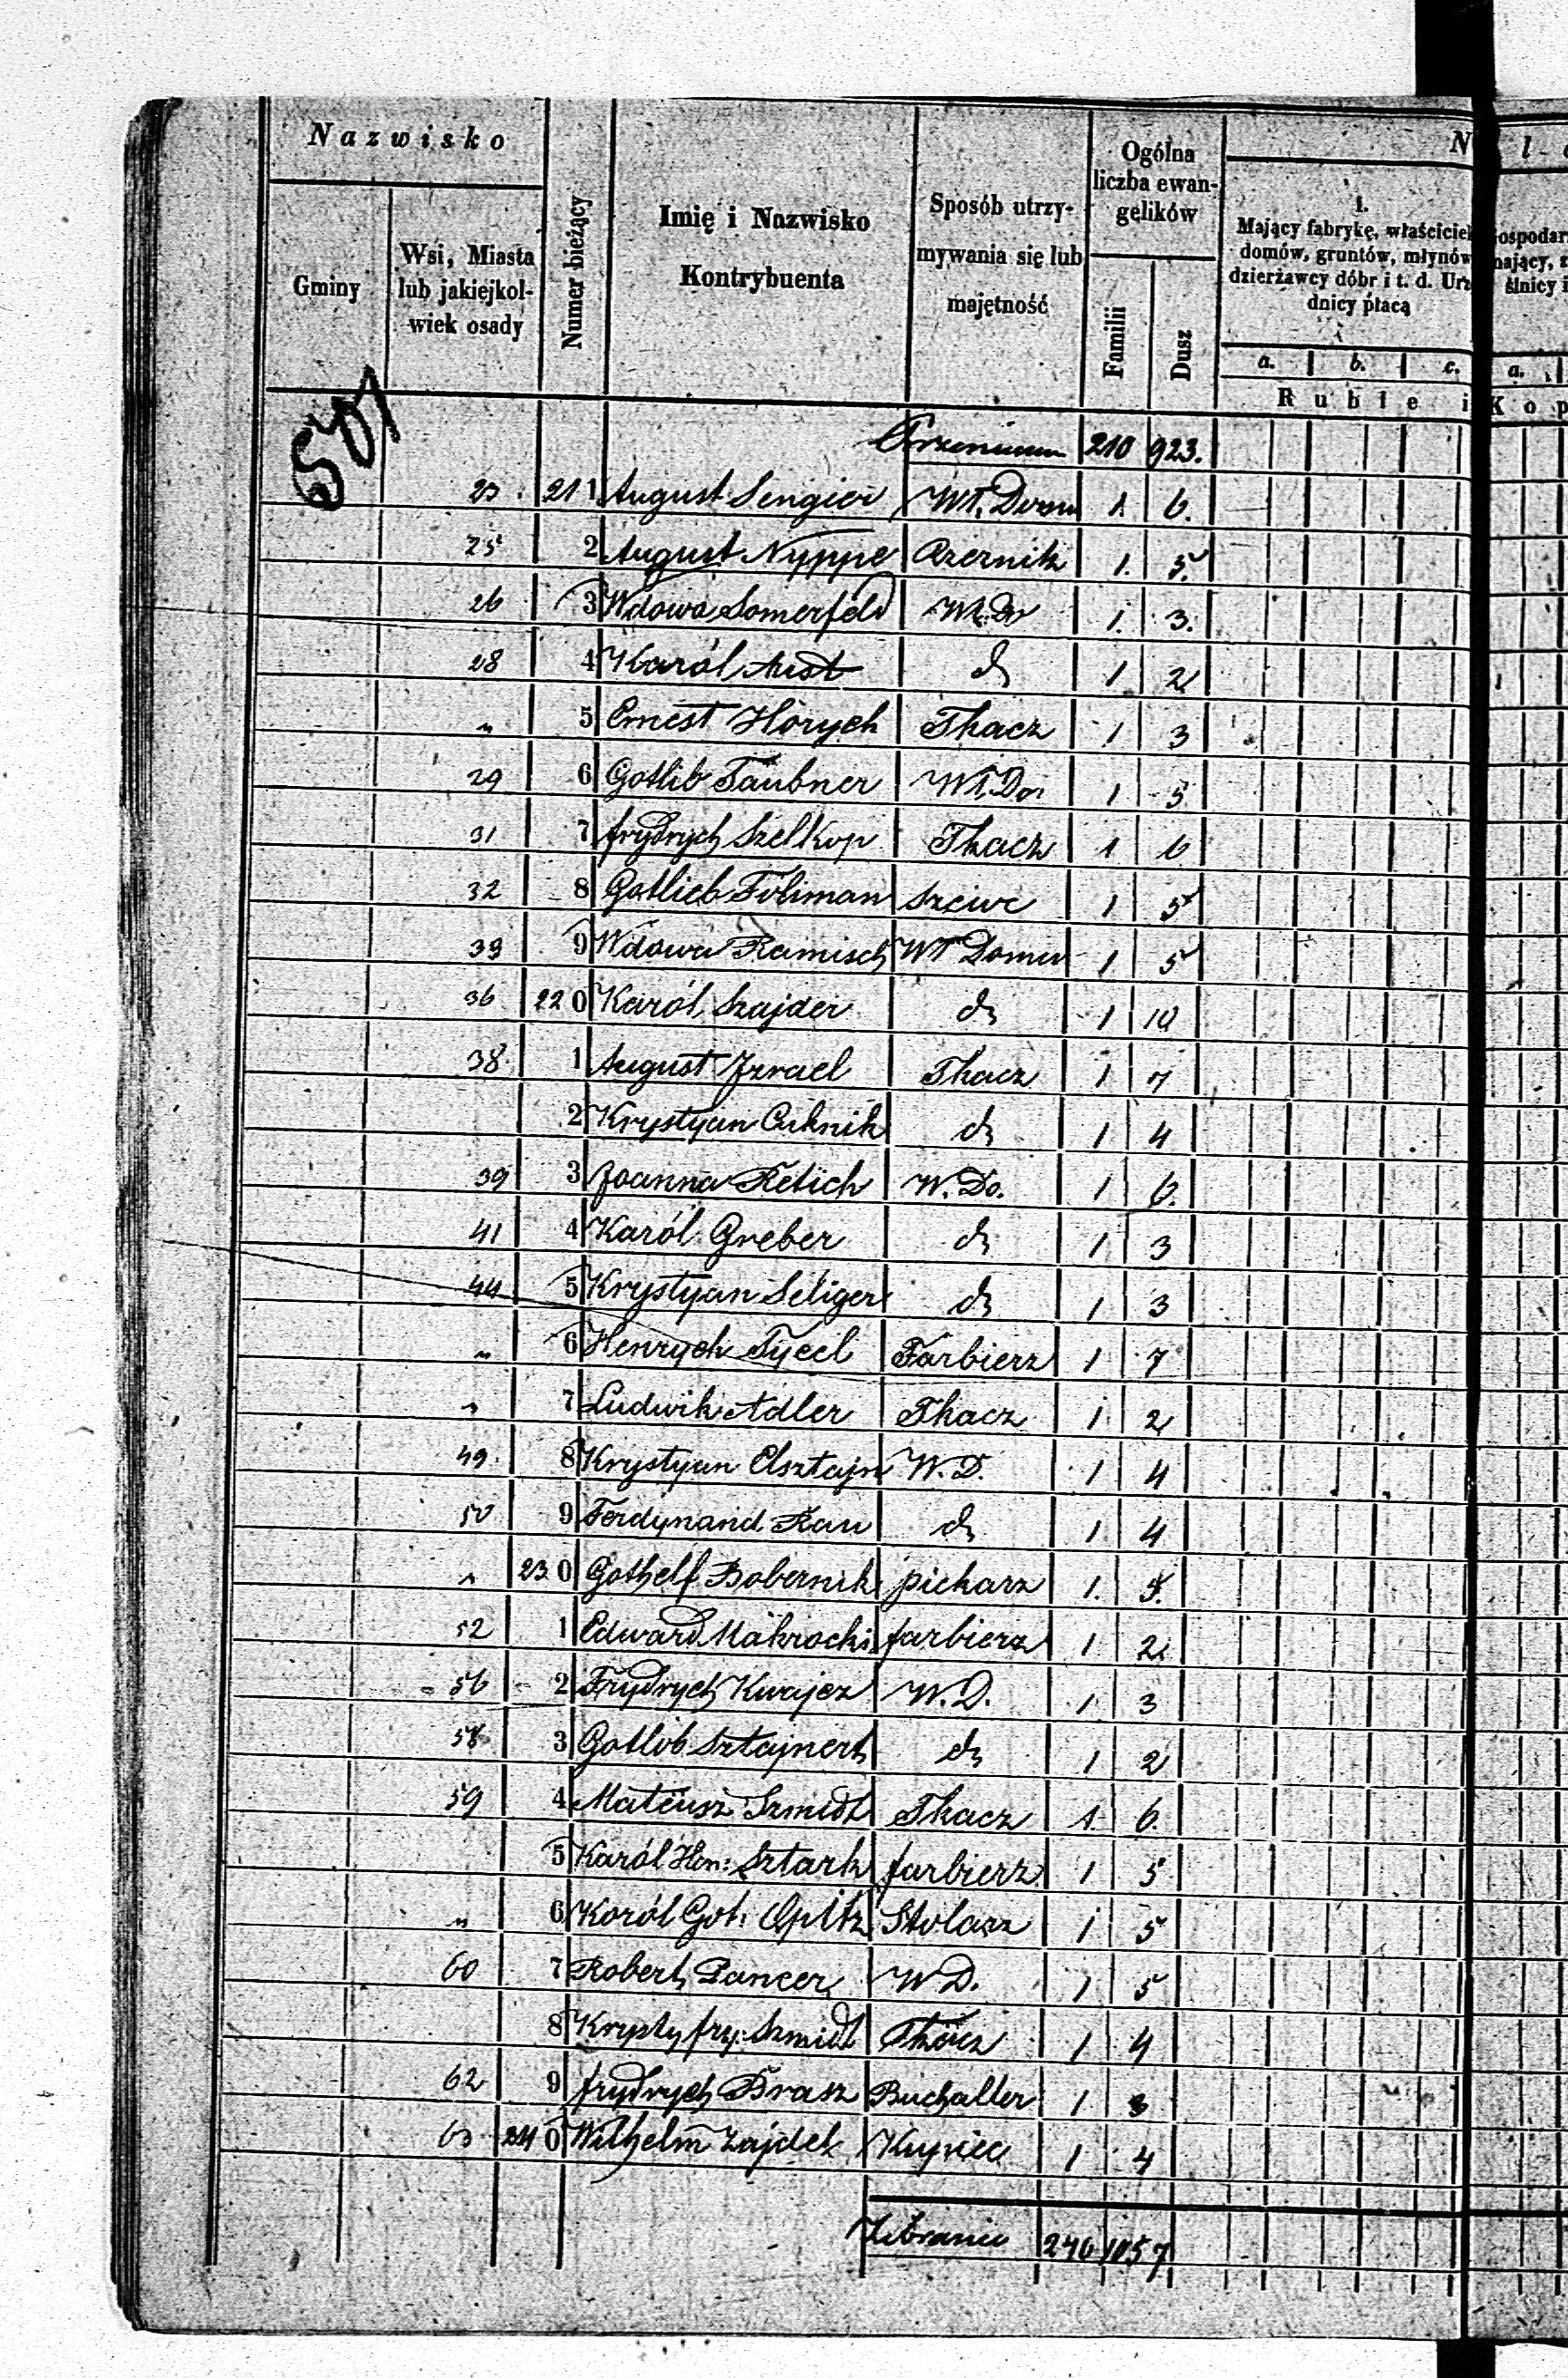 Nazwisko
Gminy
Wsi, Miasta lub jakiejkol-wiek osady
Numer bieżący
Imię i Nazwisko Kontrybuenta
Sposób utrzy-mywania się lub majętność
Ogólna liczba ewan-gelików
Familii
Dusz
N
l-
1.
Mający fabrykę, właściciel
domów, gruntów, młynów
dzierżawcy dóbr i t. d. Urz
dnicy płacą
ospodar
nający, z
ślnicy i
a. b. c. a.
Ruble i Kop
210 923.
23. 21 1 August Sengier Wł. Domu 1. 6.
25 2 August Nyppe 1. 5.
26 3 Wdowa Somerfeld Wł. Do 1. 3.
28 4 Karól Aust do 1 2
" 5 Ernest Hörych Tkacz 1 3
29 6 Gotlib Taubner Wł. Do 1 5
31 7 frydrych Szelkop Tkacz 1 6
32 8 Gotlieb Foliman szewc 1 5
33 9 Wdowa Ramisch Wł Domu 1 5
36 22 0 Karól Szajder do 1 10
38 1 August Izrael Tkacz 1 7
2 Krystyan Cuknik do 1 4
39 3 Joanna Retich W. Do. 1 6.
41 4 Karól Greber do 1 3
44 5 Krystyan Seliger do 1 3
" 6 Henrych Tycel Farbierz 1 7
" 7 Ludwik Adler Tkacz 1 2
49 8 Krystyan Elsztajn W. D. 1 4
50 9 Ferdynand Rau do 1 4
" 23 0 Gothelf Bobernik piekarz 1. 5.
52 1 Edward Makrocki farbierz 1 2
56 2 Frydrych Kwajcz W. D. 1 3
58 3 Gotlib Sztajnert do 1 2
59 4 Mateusz Szmidt Tkacz 1. 6.
5 Karól Hen: Sztark farbierz 1 5
" 6 Karól Got: Opitz Stolarz 1 5
60 7 Robert Pancer W D. 1 5
8 Krysty fry: Szmidt Tkacz 1 4
62 9 frydrych Brasz Buchalter 1 3
63 24 0 Wilhelm Zajdek Kupiec 1 4
240 1057